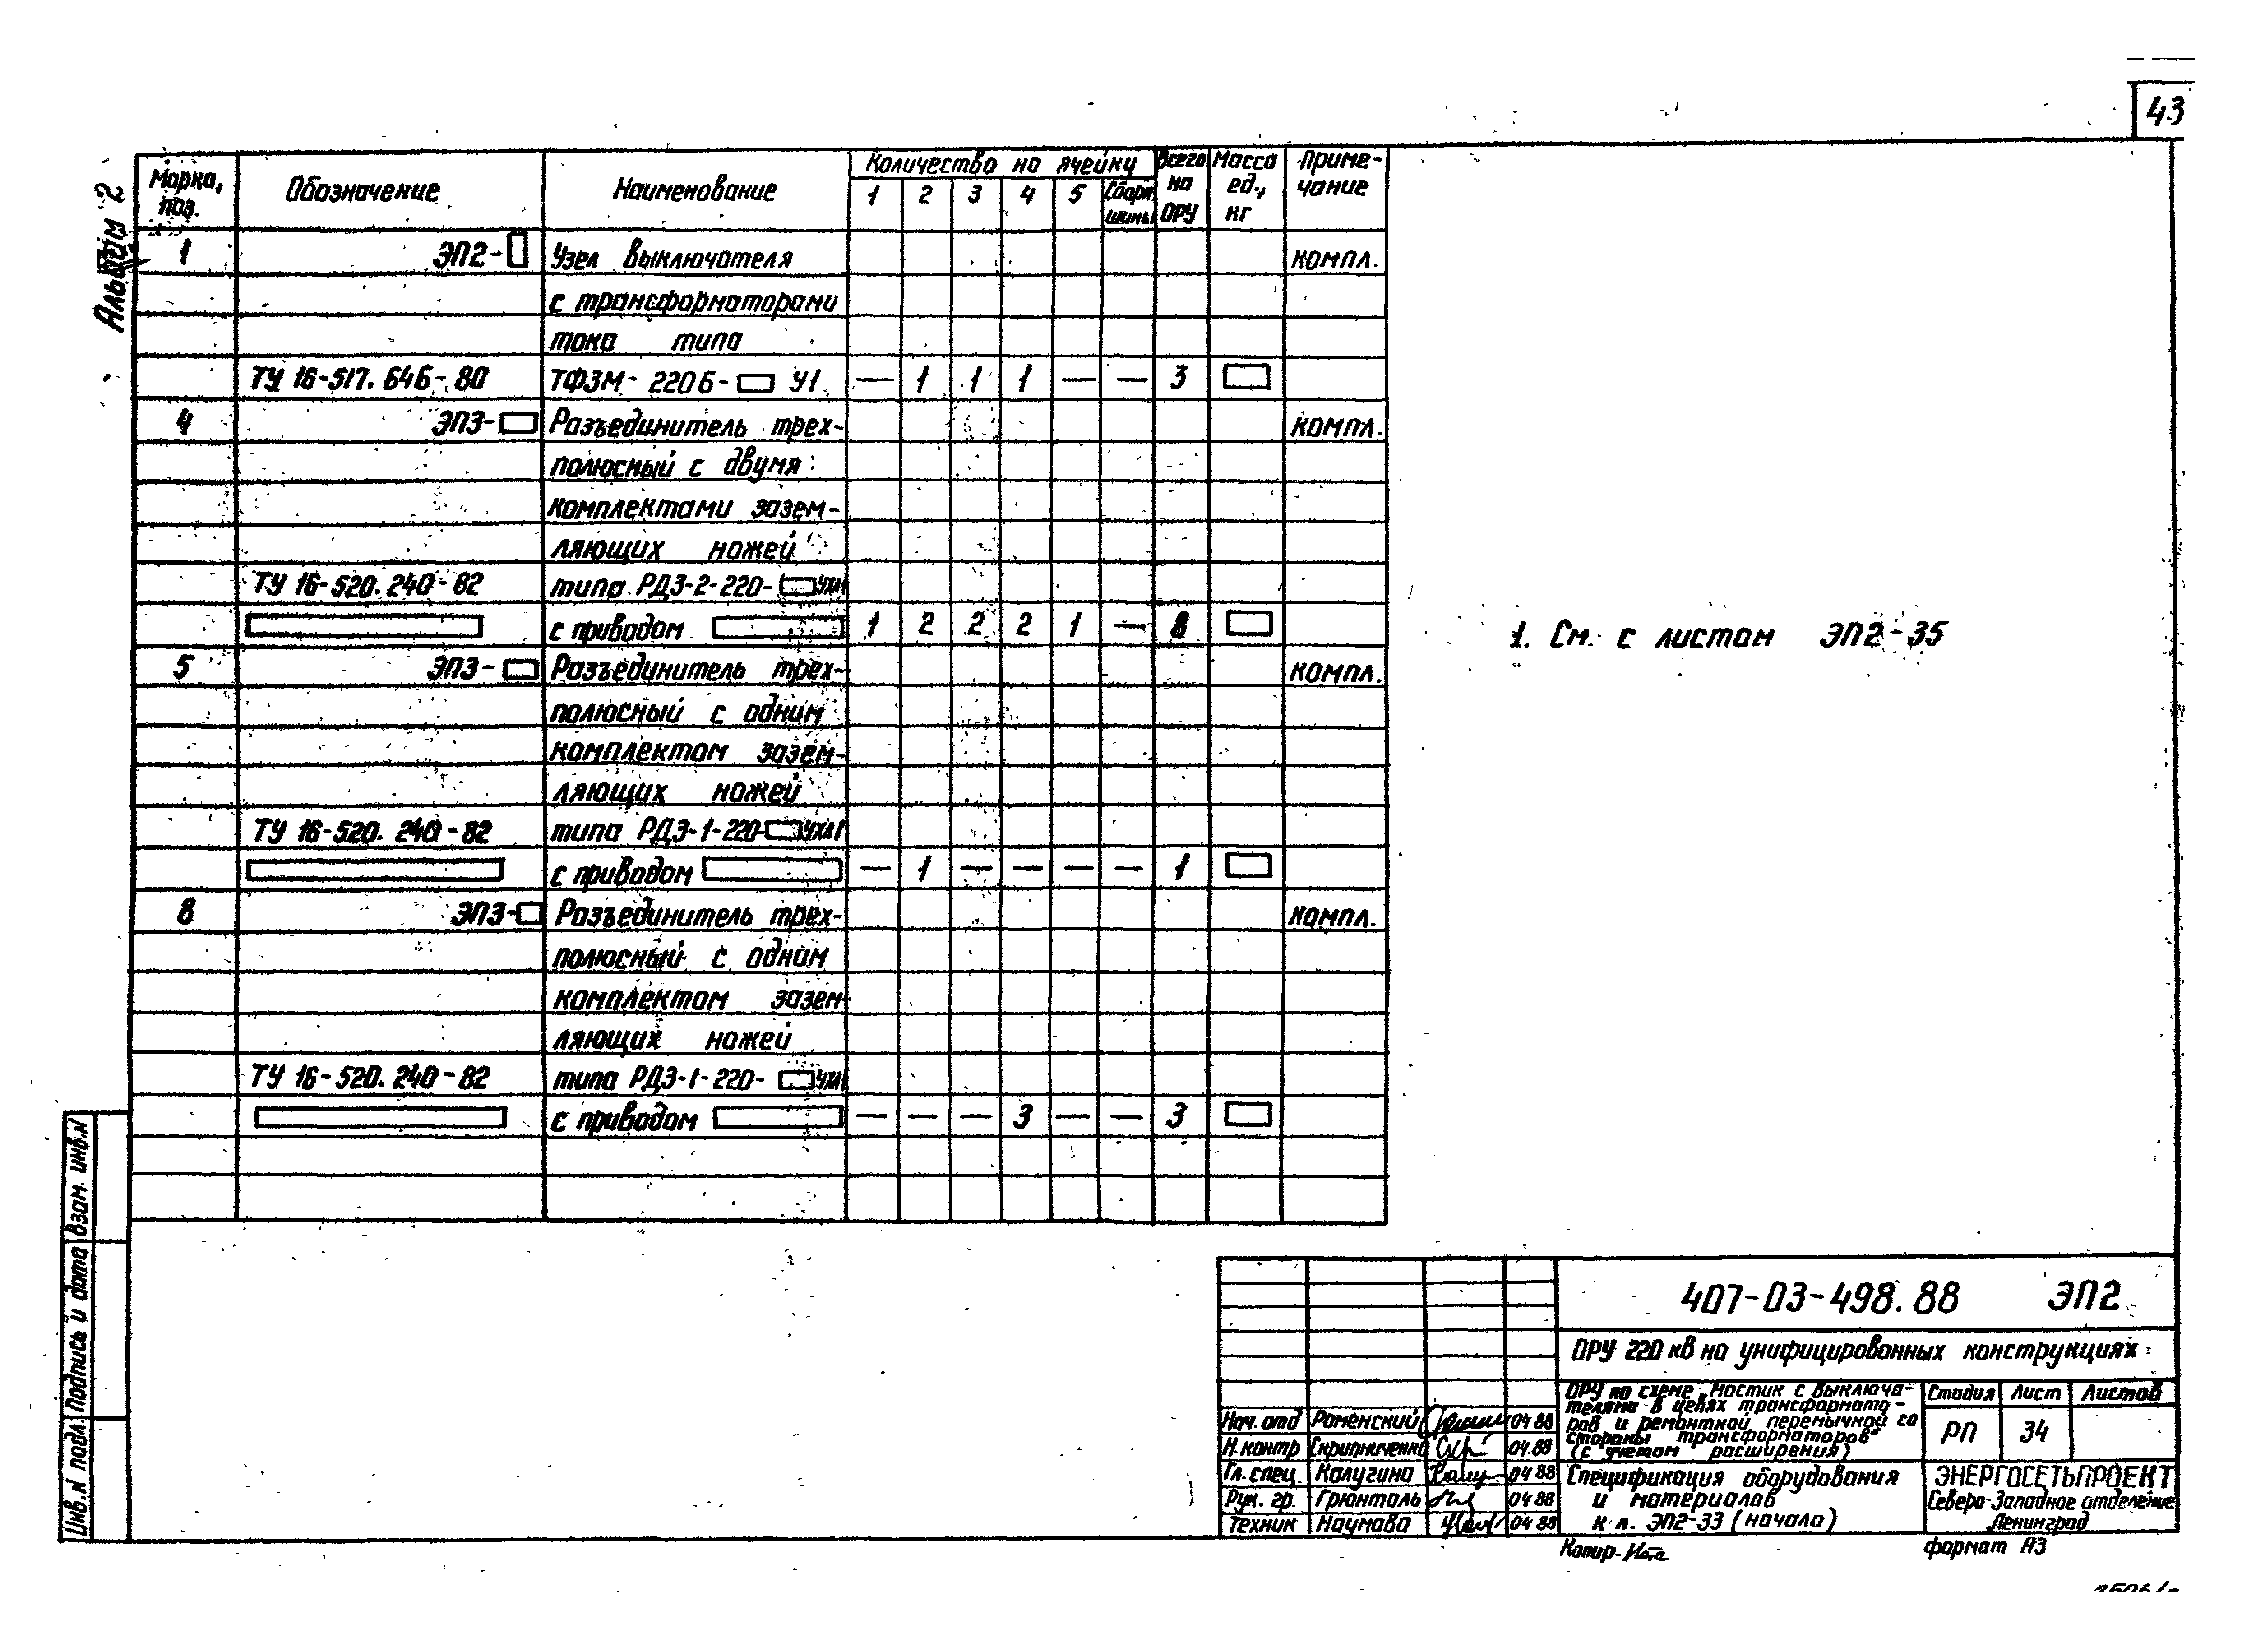 43
Альбом 2
Марка, поз. Обозначение Наименование Количество на ячейку Всего на ОРУ Масса ед., кг Приме-чание
1 2 3 4 5 Сборн. шины
1 ЭП2- Узел выключателя компл.
с трансформаторами
тока типа
ТУ 16-517.646-80 ТФЗМ-220Б- У1 — 1 1 1 — — 3
4 ЭП3- Разъединитель трех- компл.
полюсный с двумя
комплектами зазем-
ляющих ножей
ТУ 16-520.240-82 типа РДЗ-2-220- УХЛ1
с приводом 1 2 2 2 1 — 8
5 ЭП3- Разъединитель трех- компл.
полюсный с одним
комплектом зазем-
ляющих ножей
ТУ 16-520.240-82 типа РДЗ-1-220- УХЛ1
с приводом — 1 — — — — 1
8 ЭП3- Разъединитель трех- компл.
полюсный с одним
комплектом зазем-
ляющих ножей
ТУ 16-520.240-82 типа РДЗ-1-220- УХЛ1
с приводом — — — 3 — — 3
1. См. с листом ЭП2-35
Инв.N подл. Подпись и дата Взам. инв.N
407-03-498.88 ЭП2
ОРУ 220 кВ на унифицированных конструкциях
ОРУ по схеме „Мостик с выключа-
телями в цепях трансформато-
ров и ремонтной перемычкой со
стороны трансформаторов"
(с учетом расширения)
Стадия Лист Листов
РП 34
Нач. отд Роменский 04 88
Н. контр Скрипниченко 04.88
Гл. спец. Калугина 04 88
Рук. гр. Грюнталь 04 88
Техник Наумова 04 88
Спецификация оборудования
и материалов
к л. ЭП2-33 (начало)
ЭНЕРГОСЕТЬПРОЕКТ
Северо-Западное отделение
Ленинград
Копир-
формат А3